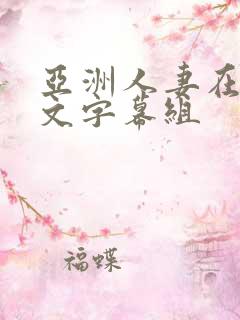 亞洲人妻在
文字幕組
福蝶